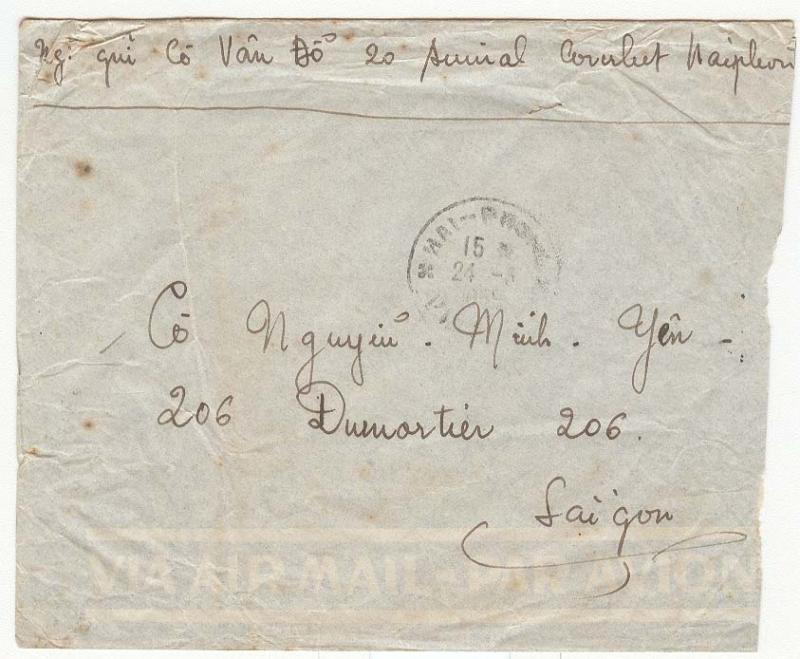 Ng: gui Cô Vân Đỗ 20 Amiral Courbet Haiphong
HAI-PHONG
15
24 -
Cô Nguyễn. Minh. Yên -
206 Dumortier 206.
Saigon
VIA AIR MAIL-PAR AVION